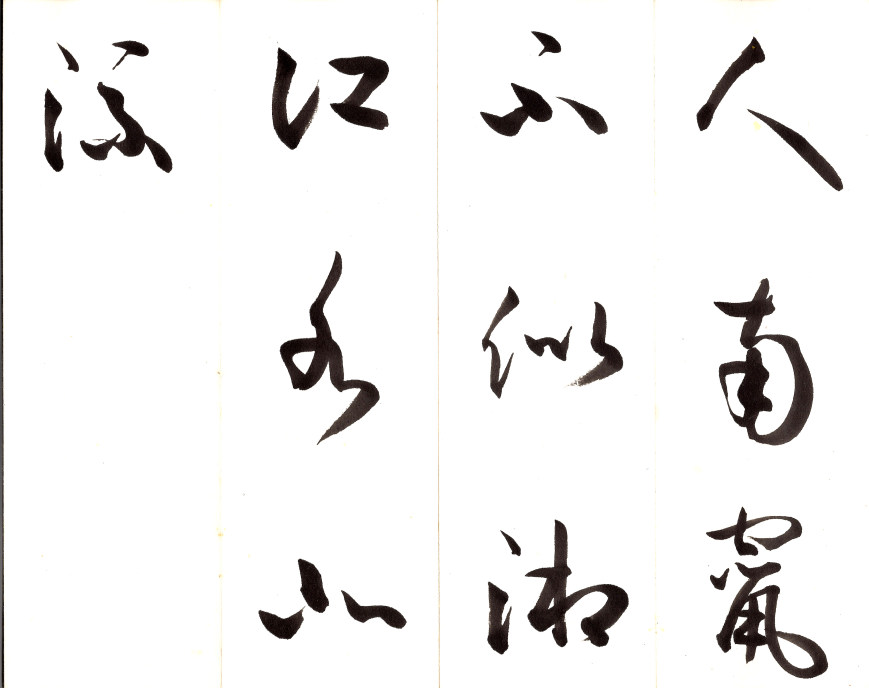 人南竄
不似湘
江水北
流